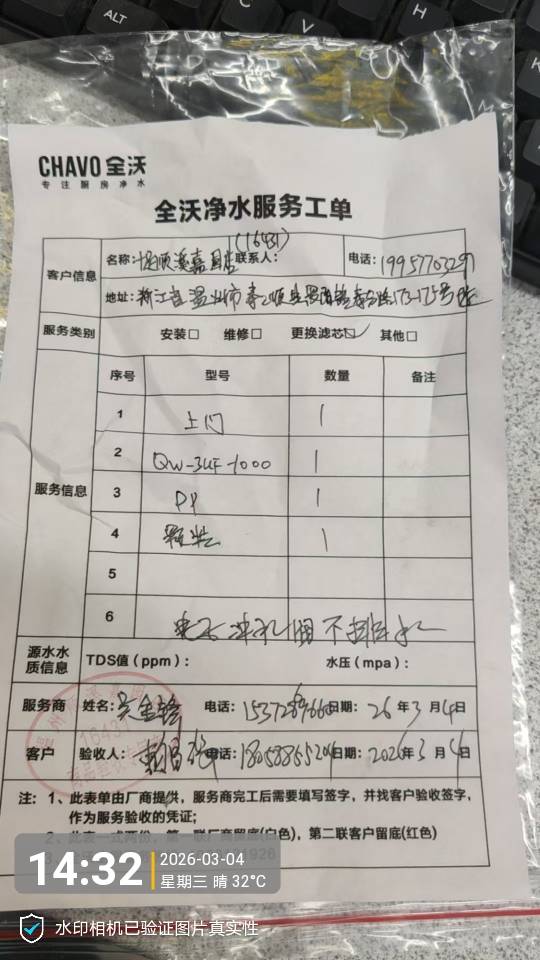 ALT
C
V
H
CHAVO 全沃
专注厨房净水
全沃净水服务工单
(16431)
客户信息
名称: 溪嘉园店 联系人:
电话: 19957703297
地址: 浙江省温州市 173-175号
服务类别
安装□ 维修□ 更换滤芯☑ 其他□
服务信息
序号 型号 数量 备注
1 上门 1
2 QW-3UF-1000 1
3 PP 1
4 1
5
6 电子冲水阀不排水
源水水质信息
TDS值(ppm): 水压(mpa):
服务商 姓名: 电话: 日期: 26年3月4日
客户 验收人: 电话: 18058855204 日期: 2026年3月4日
注: 1、此表单由厂商提供,服务商完工后需要填写签字,并找客户验收签字,
作为服务验收的凭证;
2、此表一式两份,第一联厂商留底(白色),第二联客户留底(红色)
14:32
2026-03-04
星期三 晴 32°C
水印相机已验证图片真实性